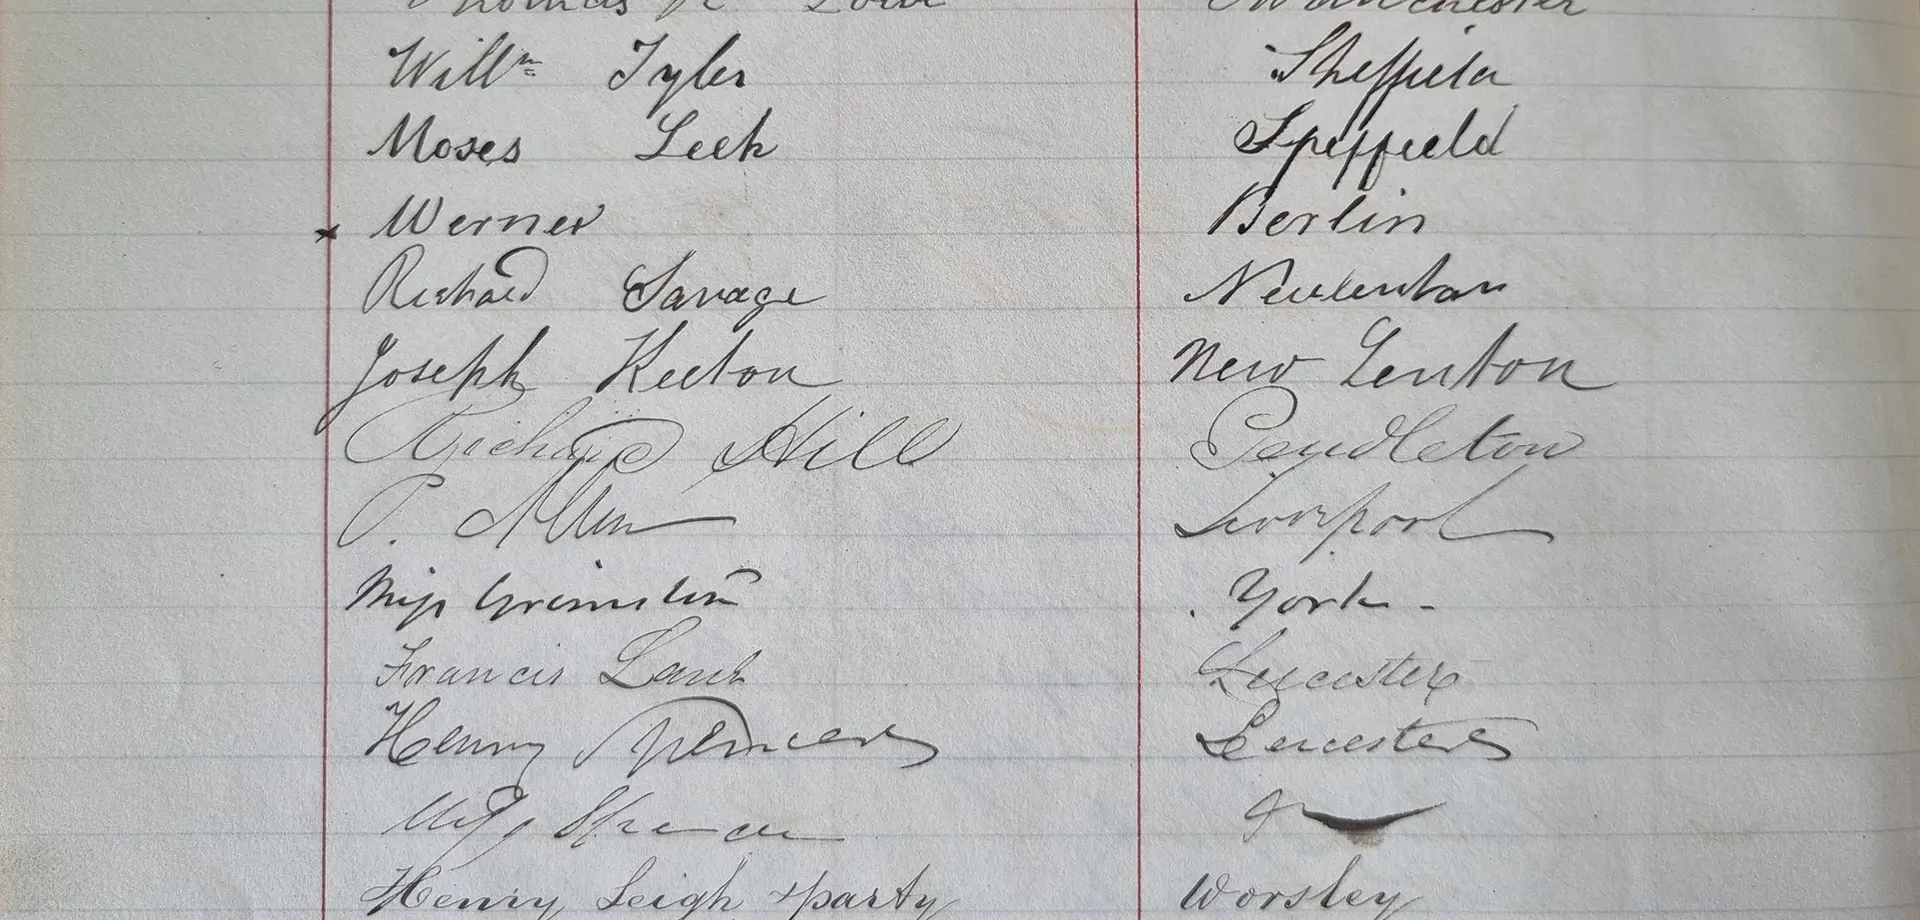 Thomas R Lowe Manchester
Willm Tyler Sheffield
Moses Leek Speffield
x Werner Berlin
Richard Savage Newlenton
Joseph Keeton New Lenton
Richard Hill Pendleton
P. Allen Liverpool
Miss Grimston York -
Francis Lamb Leicester
Henry Spencer Leicester
Miss Spencer
Henry Leigh & party Worsley